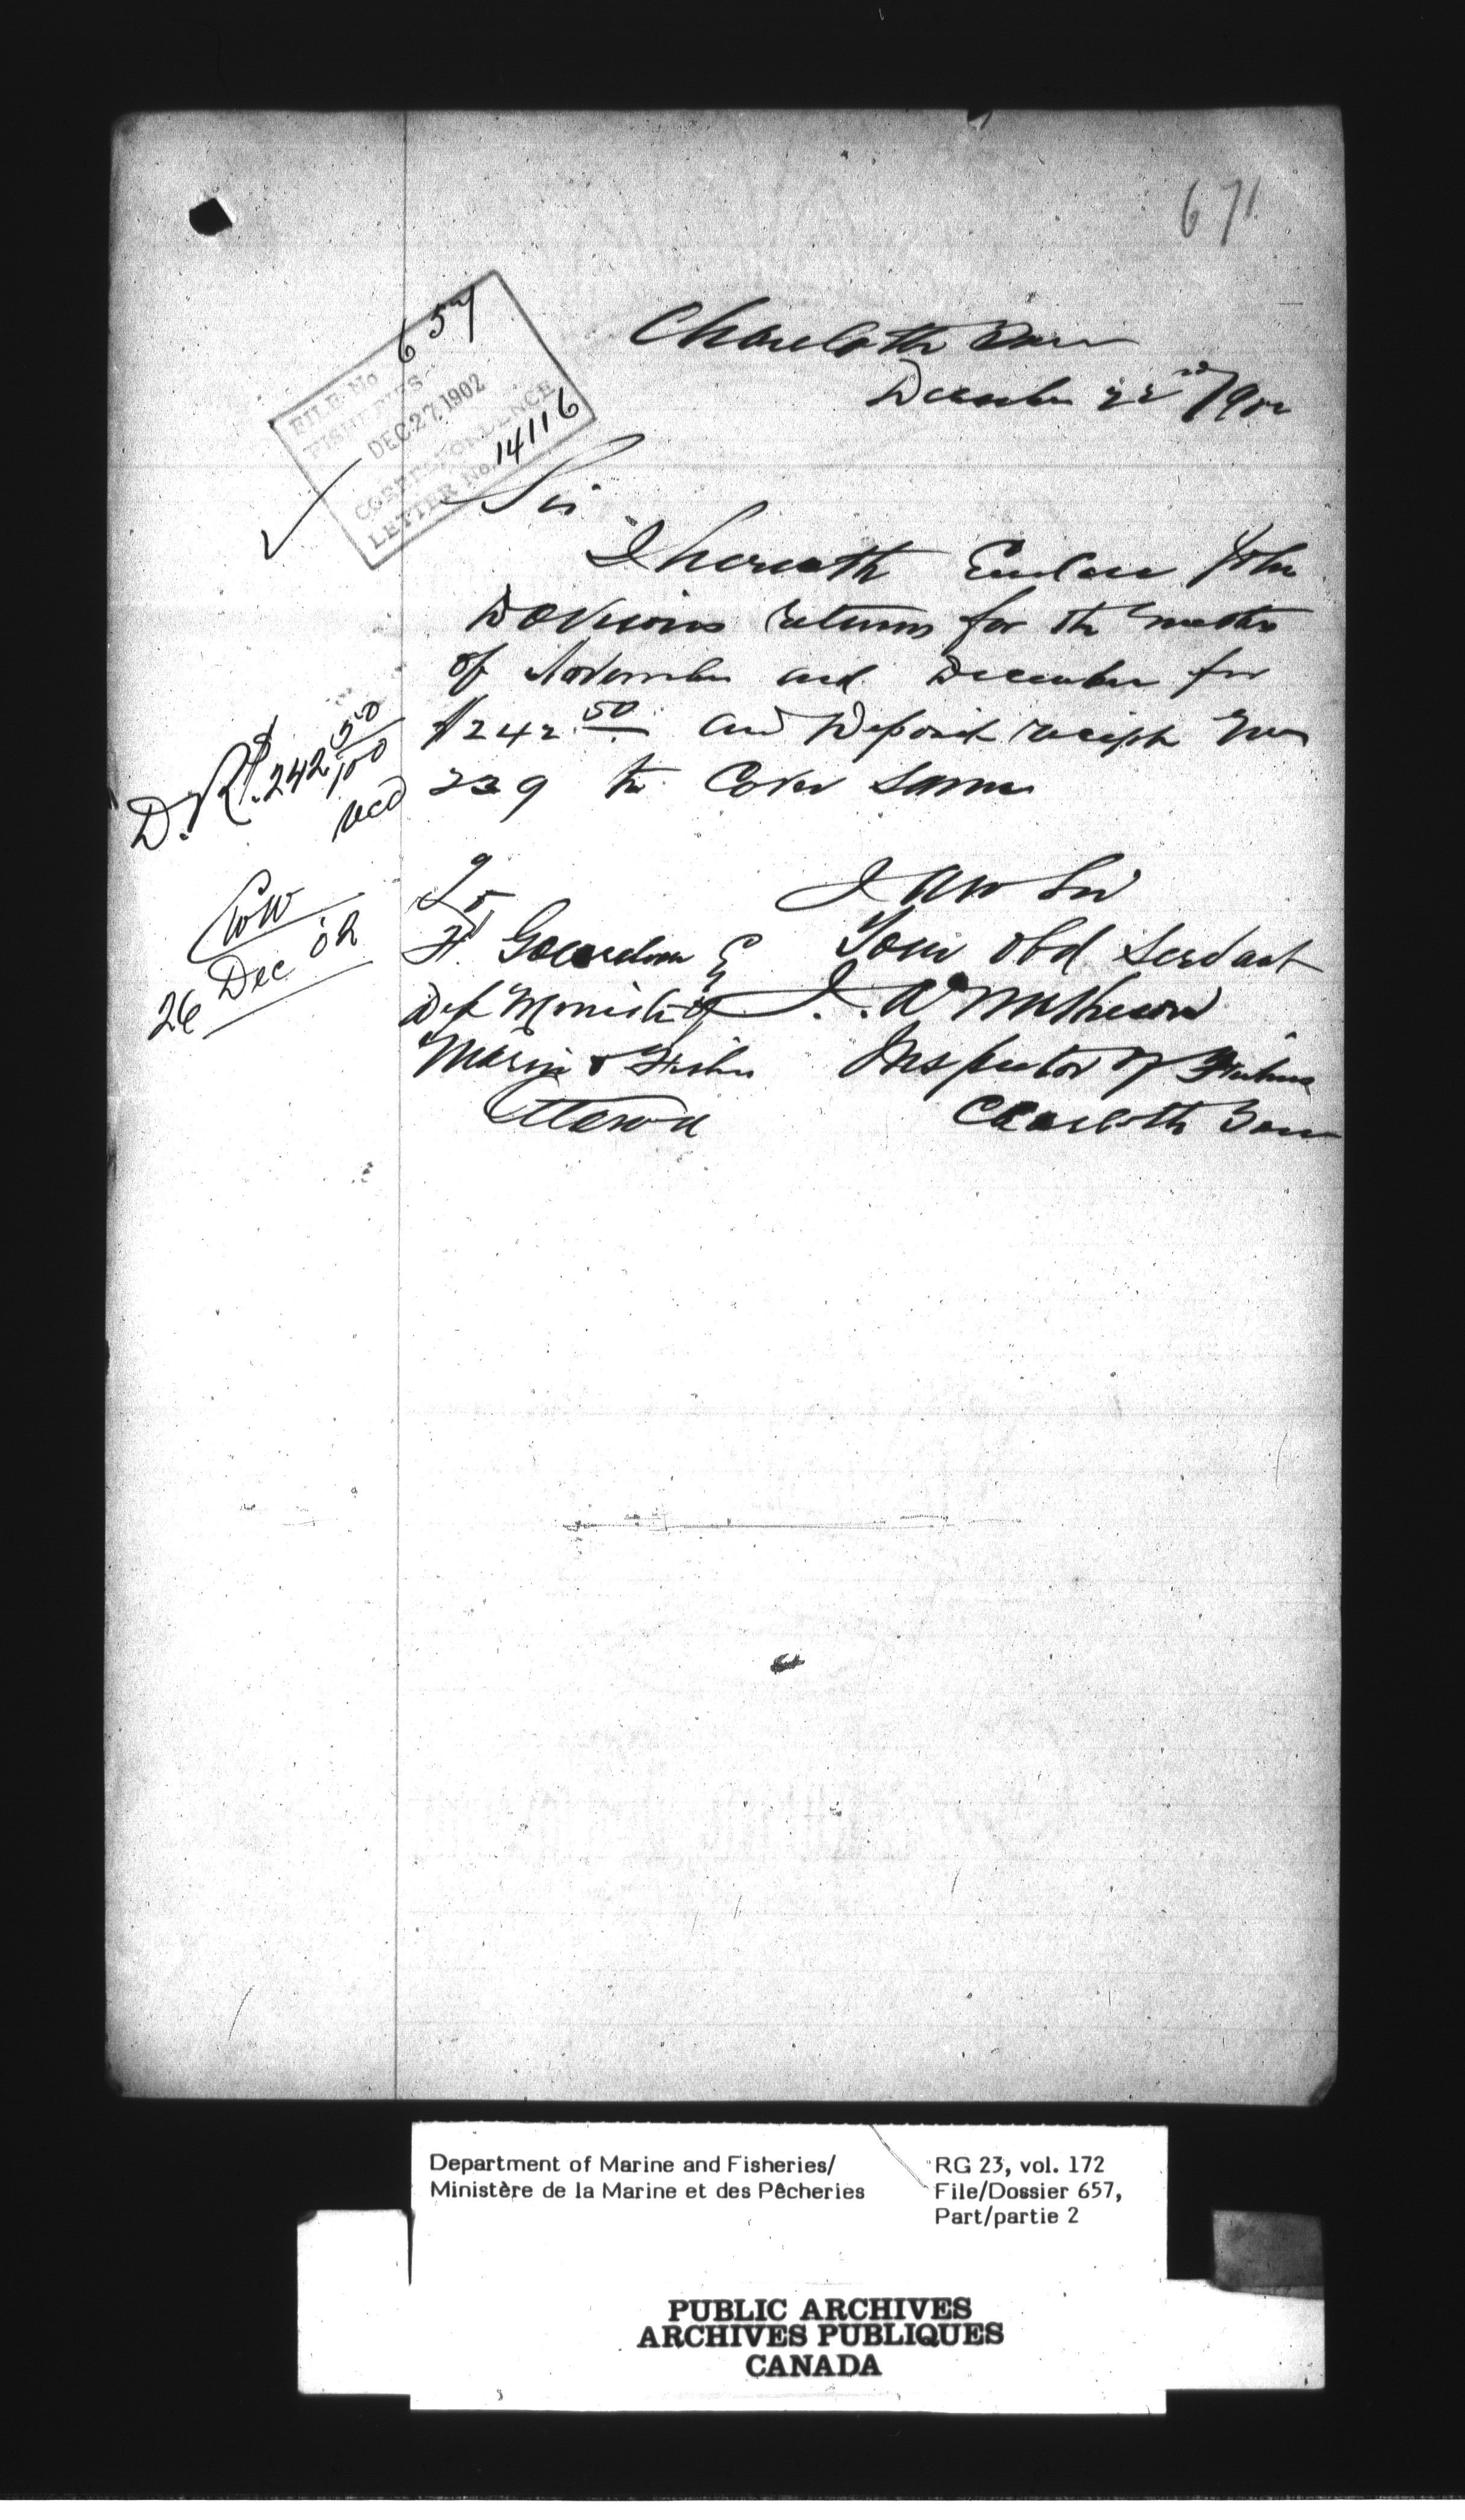 671
FILE No. 657
FISHERIES
DEC 27 1902
CORRESPONDENCE
LETTER No. 14116
Charlotte Town
December 22nd 1902
Sir
I herewith Enclose John
Davisons returns for the months
of November and December for
$242.50 and Deposit receipt
239 to Cover same
D.R. $242 50/100
recd
26 Dec 02
To
I am Sir
F. Gourdeau Your obd Servant
Dep Minister of J. A. Matheson
Marine & Fisheries Inspector of Fisheries
Ottawa Charlotte Town
Department of Marine and Fisheries/
Ministère de la Marine et des Pêcheries
RG 23, vol. 172
File/Dossier 657,
Part/partie 2
PUBLIC ARCHIVES
ARCHIVES PUBLIQUES
CANADA